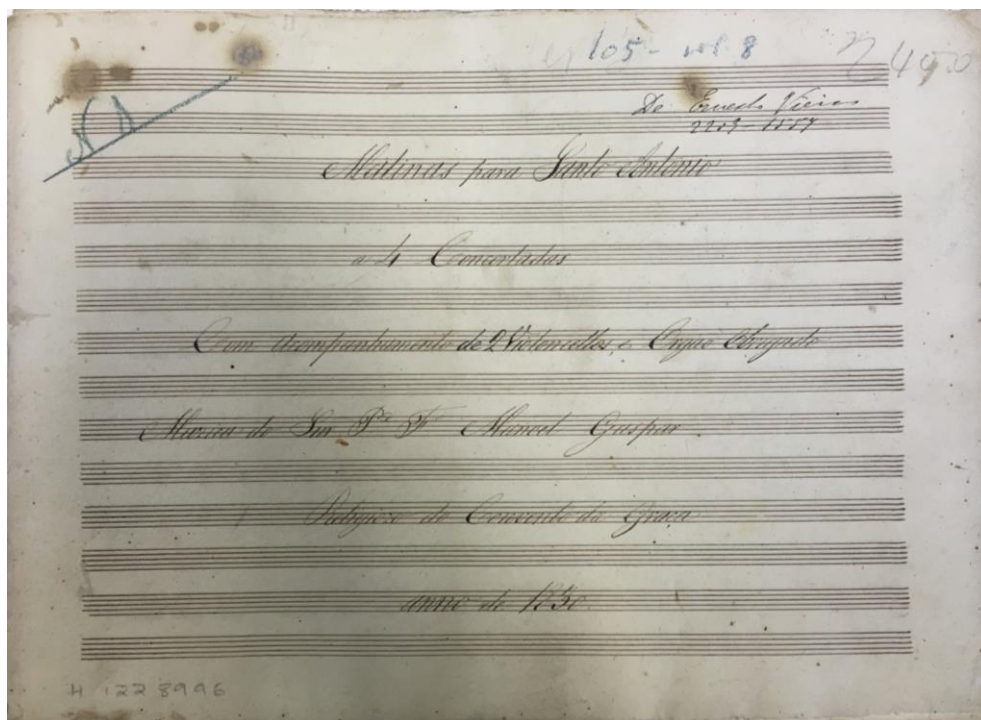 105 - vol 8
De Ernesto Vieira
Matinas para Santo Antonio
a 4 Concertadas
Com Acompanhamento de 2 Violoncellos, e Orgão Obrigado
Muzica do Snr. Pe. Fr. Manoel Gaspar
Religiozo do Convento da Graça
anno de 1830
H 1228996